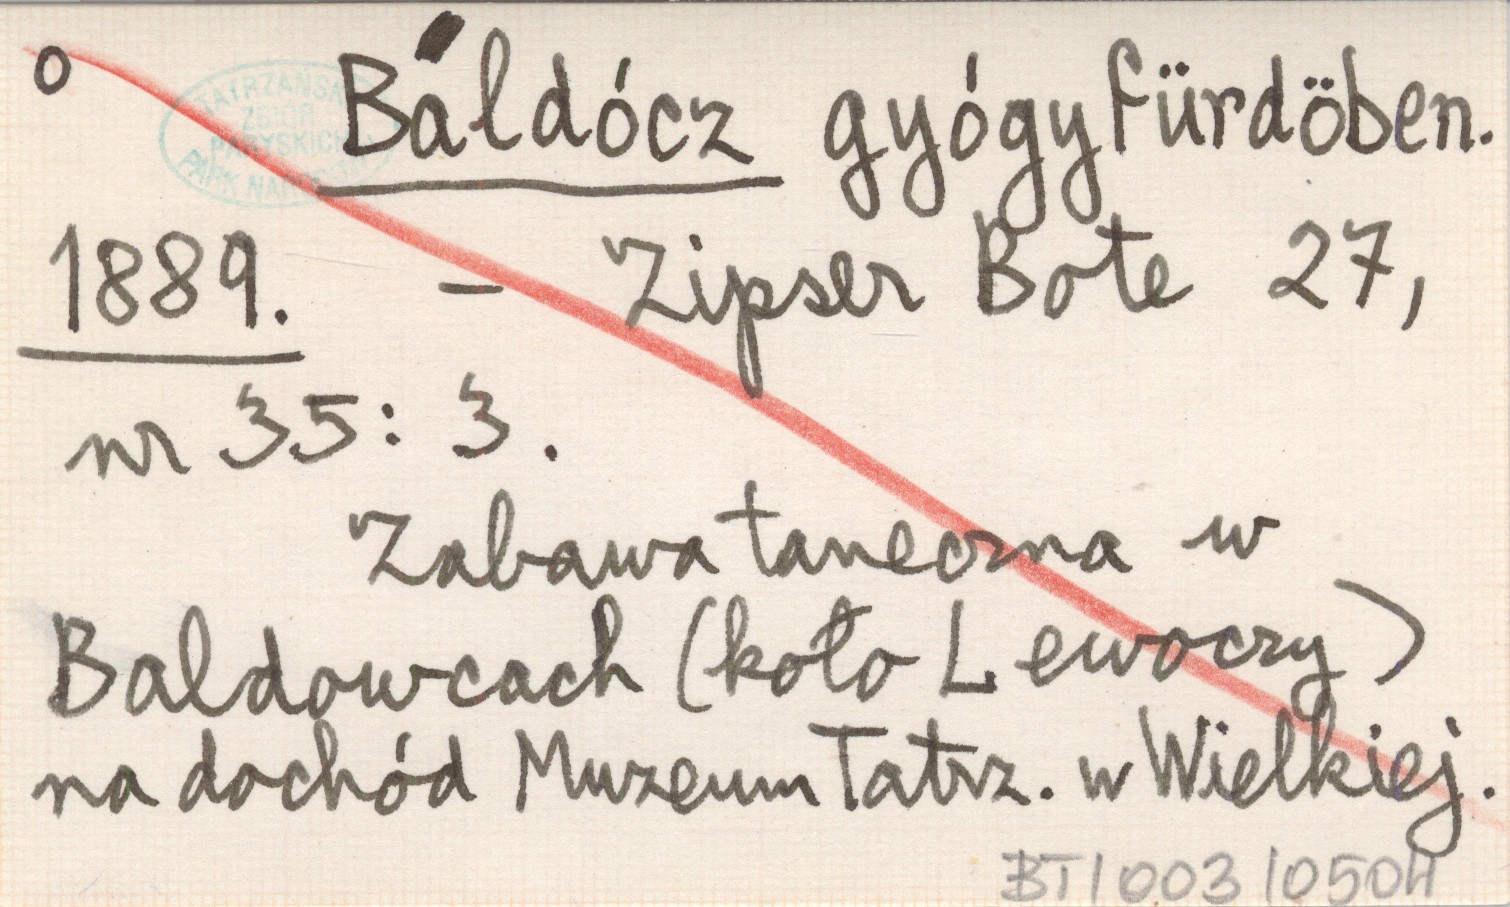 o Báldócz gyógyfürdöben.
TATRZAŃSKI
ZBIÓR
PARYSKICH
PARK NARODOWY
1889. – Zipser Bote 27,
nr 35: 3.
Zabawa taneczna w
Baldowcach (koło Lewoczy)
na dochód Muzeum Tatrz. w Wielkiej.
BT/003/0504